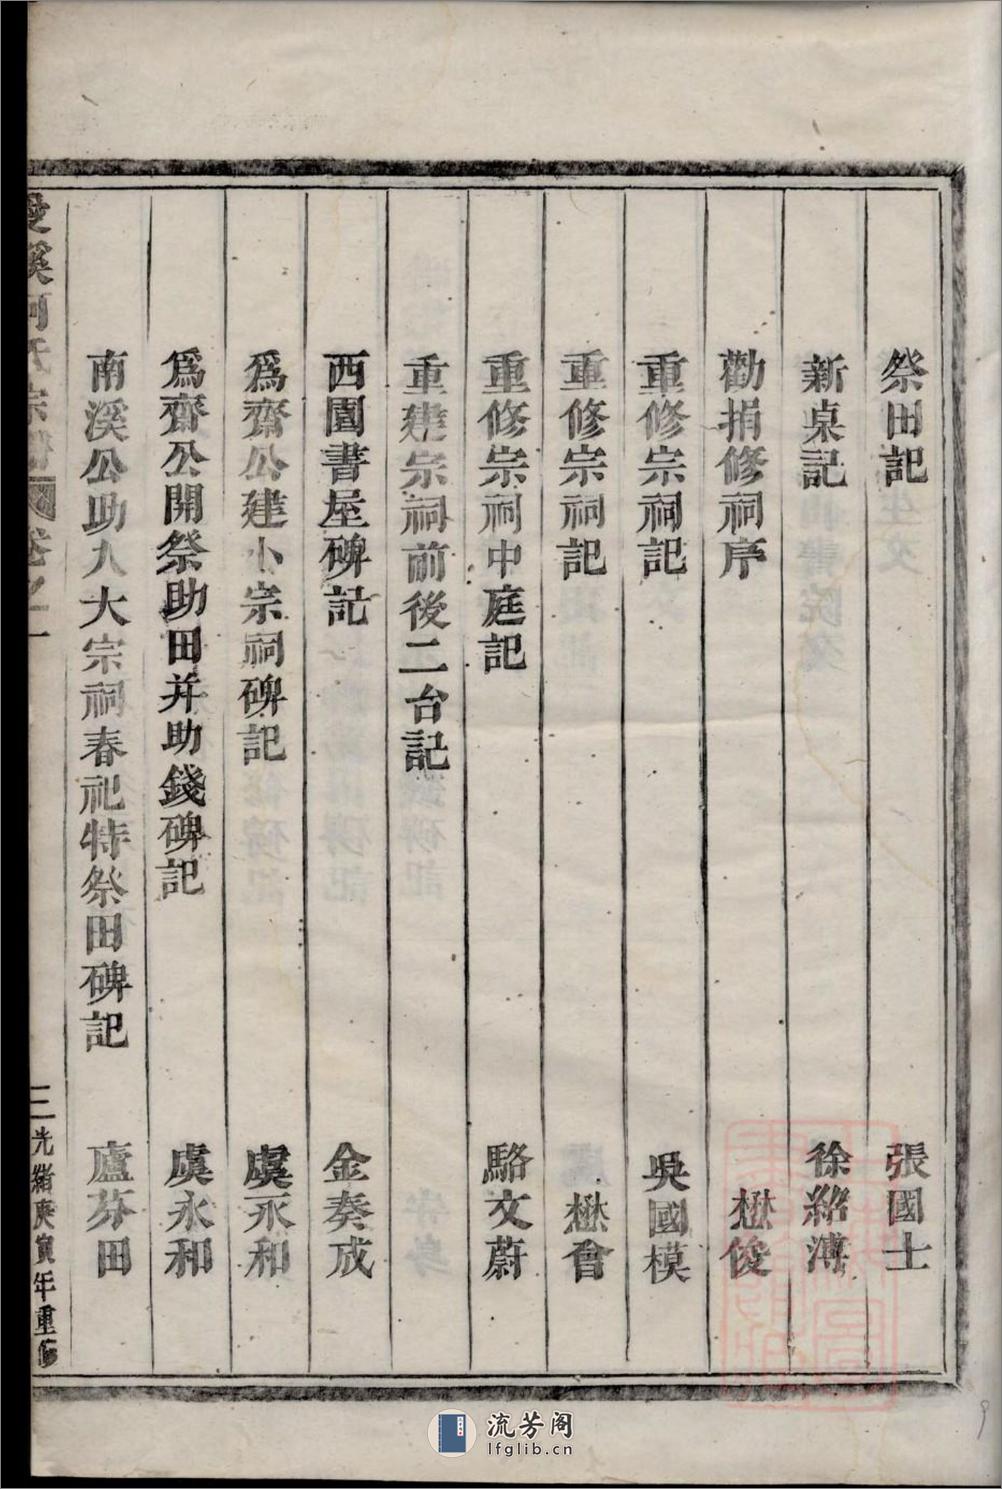 祭田記 張國士
新桌記 徐紹溥
勸捐修祠序 懋俊
重修宗祠記 吳國模
重修宗祠記 懋會
重修宗祠中庭記 駱文蔚
重建宗祠前後二台記
西園書屋碑記 金奏成
爲齋公建小宗祠碑記 虞永和
爲齋公開祭助田并助錢碑記 虞永和
南溪公助入大宗祠春祀特祭田碑記 盧芬田
溪何氏宗譜 卷之一 三 光緒庚寅年重修
流芳阁
lfglib.cn